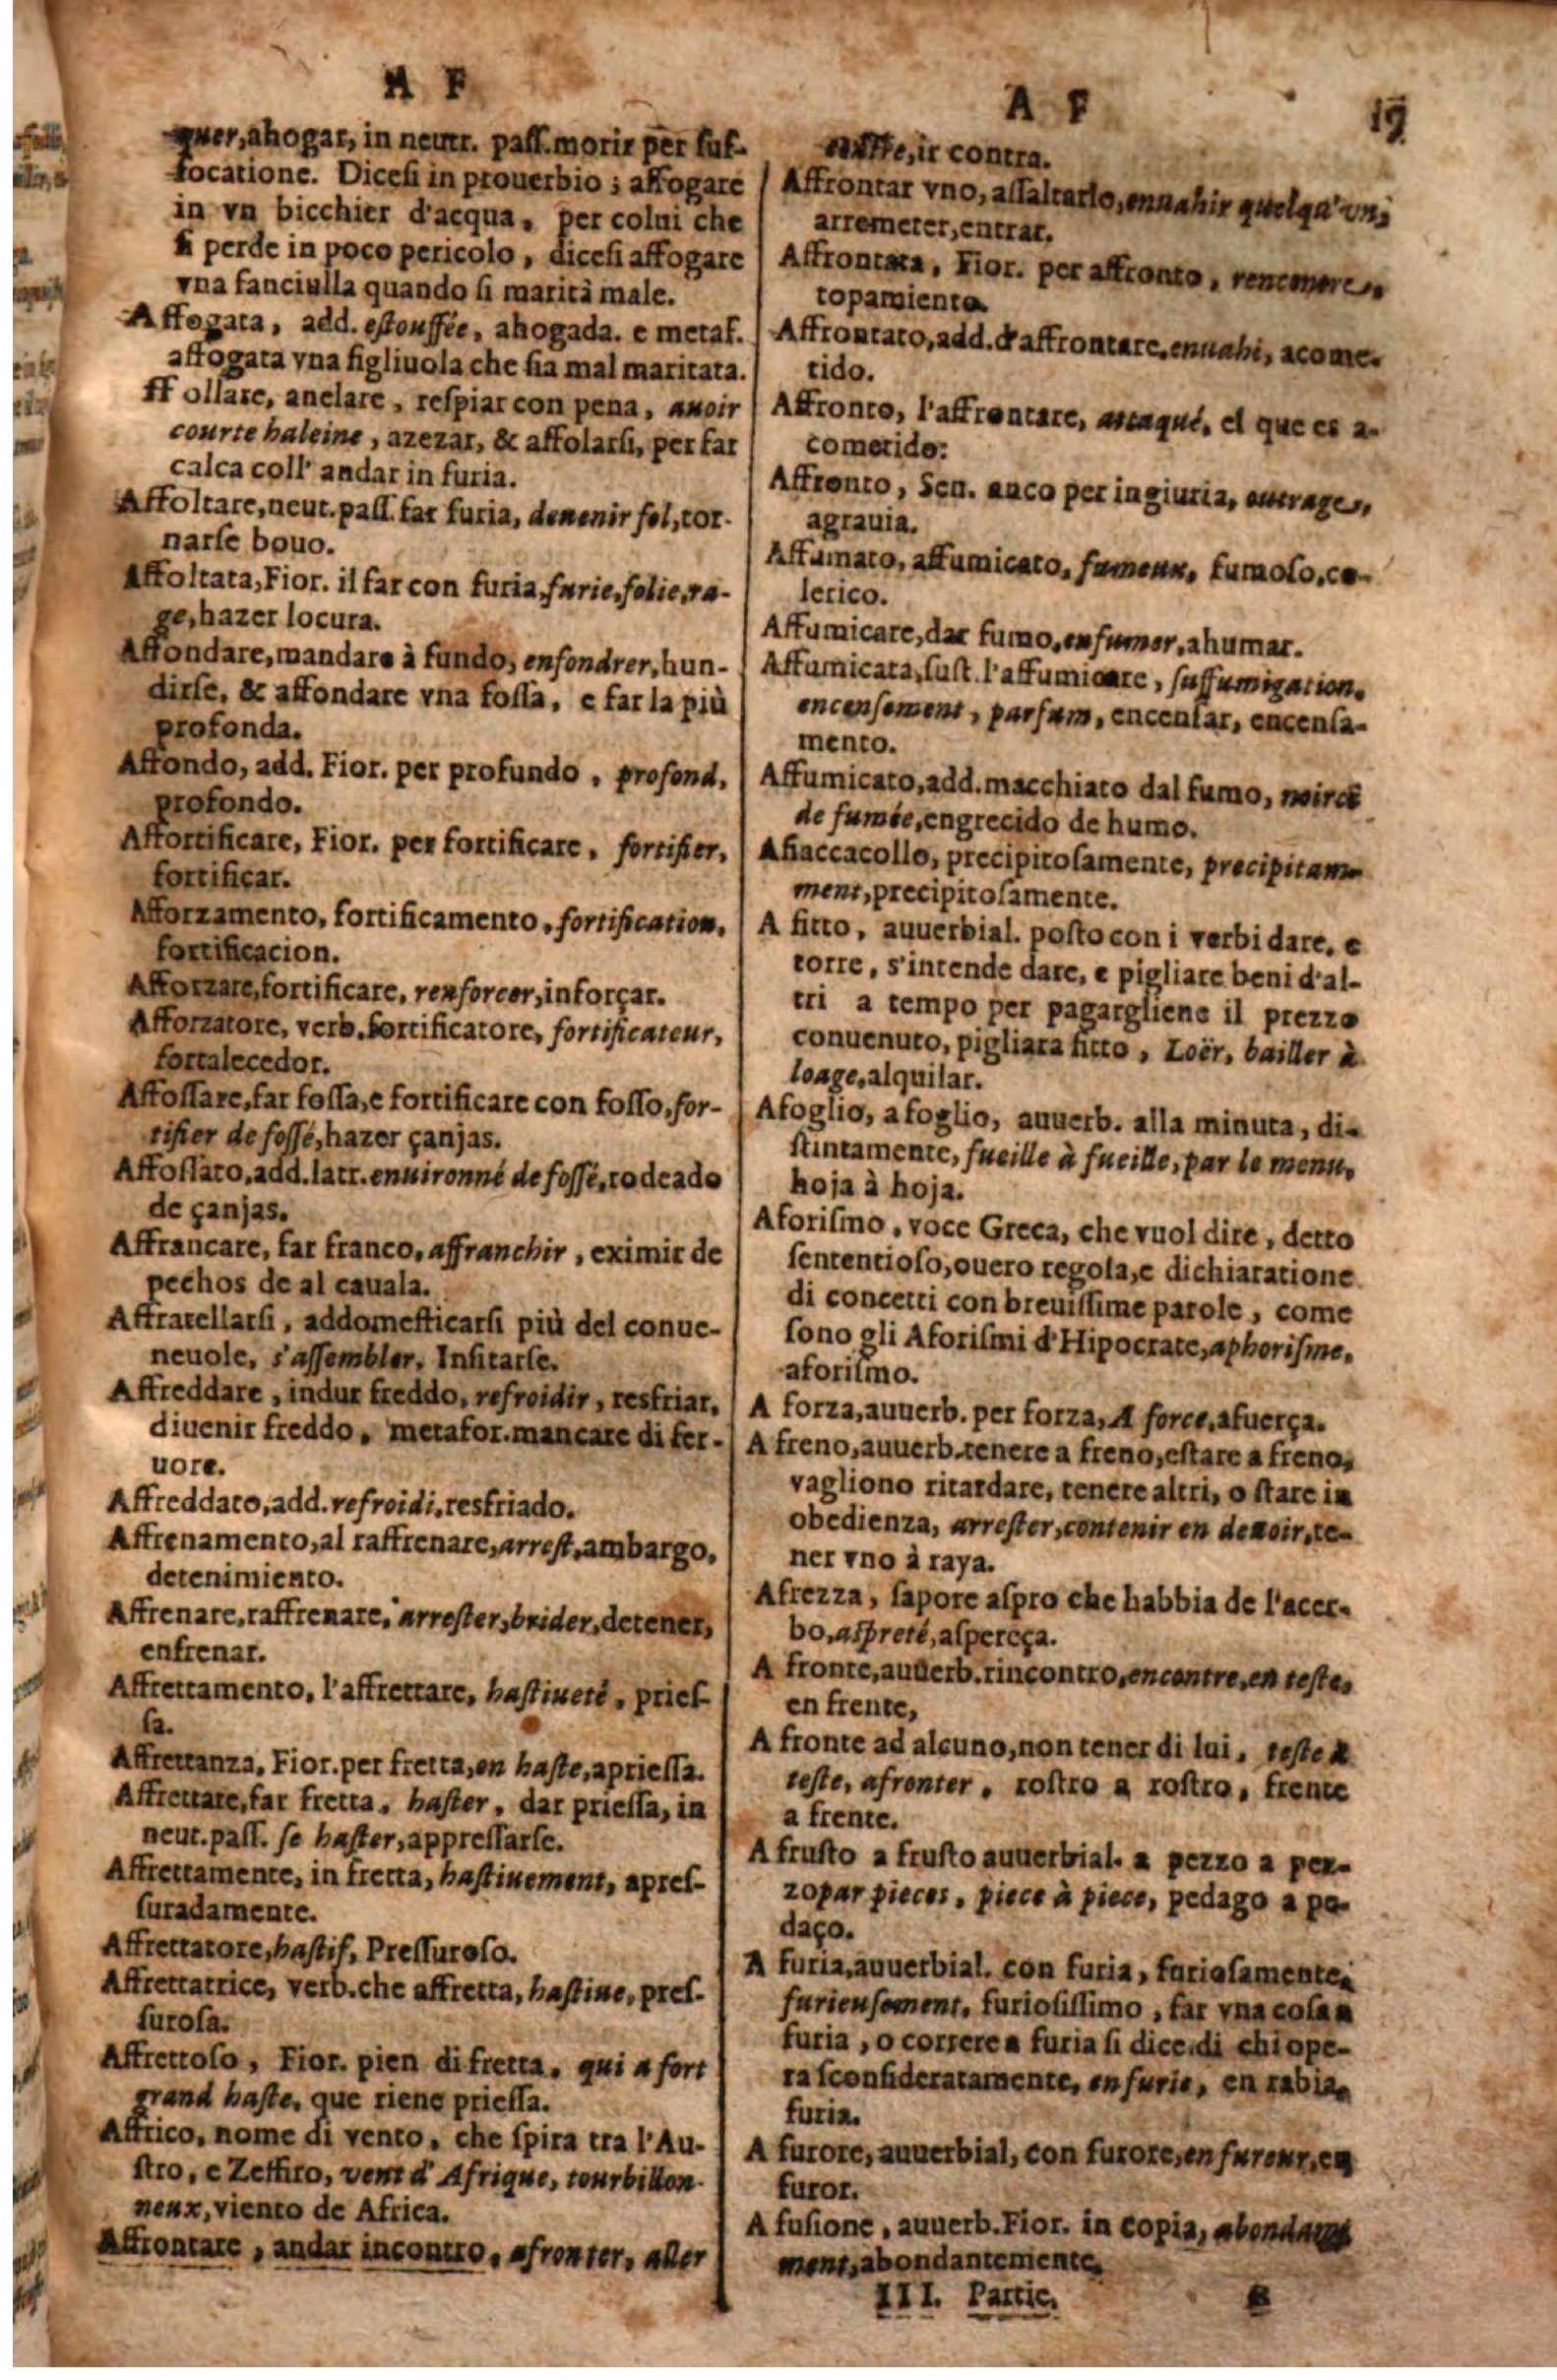 A F
quer, ahogar, in neutr. paſſ. morir per ſuf-
focatione. Diceſi in prouerbio; affogare
in vn bicchier d'acqua, per colui che
ſi perde in poco pericolo, diceſi affogare
vna fanciulla quando ſi marità male.
Affogata, add. eſtouffée, ahogada. e metaf.
affogata vna figliuola che ſia mal maritata.
ff ollare, anelare, reſpiar con pena, auoir
courte haleine, azezar, & affolarſi, per far
calca coll' andar in furia.
Affoltare, neut. paſſ. far furia, deuenir fol, tor-
narſe bouo.
Affoltata, Fior. il far con furia, furie, folie, ra-
ge, hazer locura.
Affondare, mandare à fundo, enfondrer, hun-
dirſe, & affondare vna foſſa, e far la più
profonda.
Affondo, add. Fior. per profundo, profond,
profondo.
Affortificare, Fior. per fortificare, fortifier,
fortificar.
Afforzamento, fortificamento, fortification,
fortificacion.
Afforzare, fortificare, renforcer, inforçar.
Afforzatore, verb. fortificatore, fortificateur,
fortalecedor.
Affoſſare, far foſſa, e fortificare con foſſo, for-
tifier de foſſé, hazer çanjas.
Affoſſato, add. latr. enuironné de foſſé, rodeado
de çanjas.
Affrancare, far franco, affranchir, eximir de
pechos de al cauala.
Affratellarſi, addomeſticarſi più del conue-
neuole, s'aſſembler, Inſitarſe.
Affreddare, indur freddo, refroidir, resfriar,
diuenir freddo, metafor. mancare di fer-
uore.
Affreddato, add. refroidi, resfriado.
Affrenamento, al raffrenare, arreſt, ambargo,
detenimiento.
Affrenare, raffrenare, arreſter, brider, detener,
enfrenar.
Affrettamento, l'affrettare, haſtiueté, prieſ-
ſa.
Affrettanza, Fior. per fretta, en haſte, aprieſſa.
Affrettare, far fretta, haſter, dar prieſſa, in
neut. paſſ. ſe haſter, appreſſarſe.
Affrettamente, in fretta, haſtiuement, apreſ-
ſuradamente.
Affrettatore, haſtif, Preſſuroſo.
Affrettatrice, verb. che affretta, haſtiue, preſ-
ſuroſa.
Affrettoſo, Fior. pien di fretta, qui a fort
grand haſte, que riene prieſſa.
Affrico, nome di vento, che ſpira tra l'Au-
ſtro, e Zeffiro, vent d'Afrique, tourbillon-
neux, viento de Africa.
Affrontare, andar incontro, afronter, aller
A F 19
ir contra.
Affrontar vno, aſſaltarlo, enuahir quelqu'vn,
arremeter, entrar.
Affrontata, Fior. per affronto, rencontre,
topamiento.
Affrontato, add. d'affrontare, enuahi, acome-
tido.
Affronto, l'affrontare, attaqué, el que es a-
cometido:
Affronto, Sen. anco per ingiuria, outrage,
agrauia.
Affumato, affumicato, fumeux, fumoſo, co-
lerico.
Affumicare, dar fumo, enfumer, ahumar.
Affumicata, ſuſt. l'affumicare, ſuffumigation,
encenſement, parfum, encenſar, encenſa-
mento.
Affumicato, add. macchiato dal fumo, noirci
de fumée, engrecido de humo.
Afiaccacollo, precipitoſamente, precipitam-
ment, precipitoſamente.
A fitto, auuerbial. poſto con i verbi dare, e
torre, s'intende dare, e pigliare beni d'al-
tri a tempo per pagargliene il prezzo
conuenuto, pigliara fitto, Loër, bailler à
loage, alquilar.
Afoglio, a foglio, auuerb. alla minuta, di-
ſtintamente, fueille à fueille, par le menu,
hoja à hoja.
Aforiſmo, voce Greca, che vuol dire, detto
ſententioſo, ouero regola, e dichiaratione
di concetti con breuiſſime parole, come
ſono gli Aforiſmi d'Hipocrate, aphoriſme,
aforiſmo.
A forza, auuerb. per forza, A force, afuerça.
A freno, auuerb. tenere a freno, eſtare a freno,
vagliono ritardare, tenere altri, o ſtare in
obedienza, arreſter, contenir en deuoir, te-
ner vno à raya.
Afrezza, ſapore aſpro che habbia de l'acer-
bo, aſpreté, aſpereça.
A fronte, auuerb. rincontro, encontre, en teſte,
en frente,
A fronte ad alcuno, non tener di lui, teſte à
teſte, afronter, roſtro a roſtro, frente
a frente.
A fruſto a fruſto auuerbial. a pezzo a pez-
zo par pieces, piece à piece, pedago a pe-
daço.
A furia, auuerbial. con furia, furioſamente,
furieuſement, furioſiſſimo, far vna coſa a
furia, o correre a furia ſi dice di chi ope-
ra ſconſideratamente, en furie, en rabia,
furia.
A furore, auuerbial, con furore, en fureur, en
furor.
A fuſione, auuerb. Fior. in copia, abondam-
ment, abondantemente,
III. Partie.